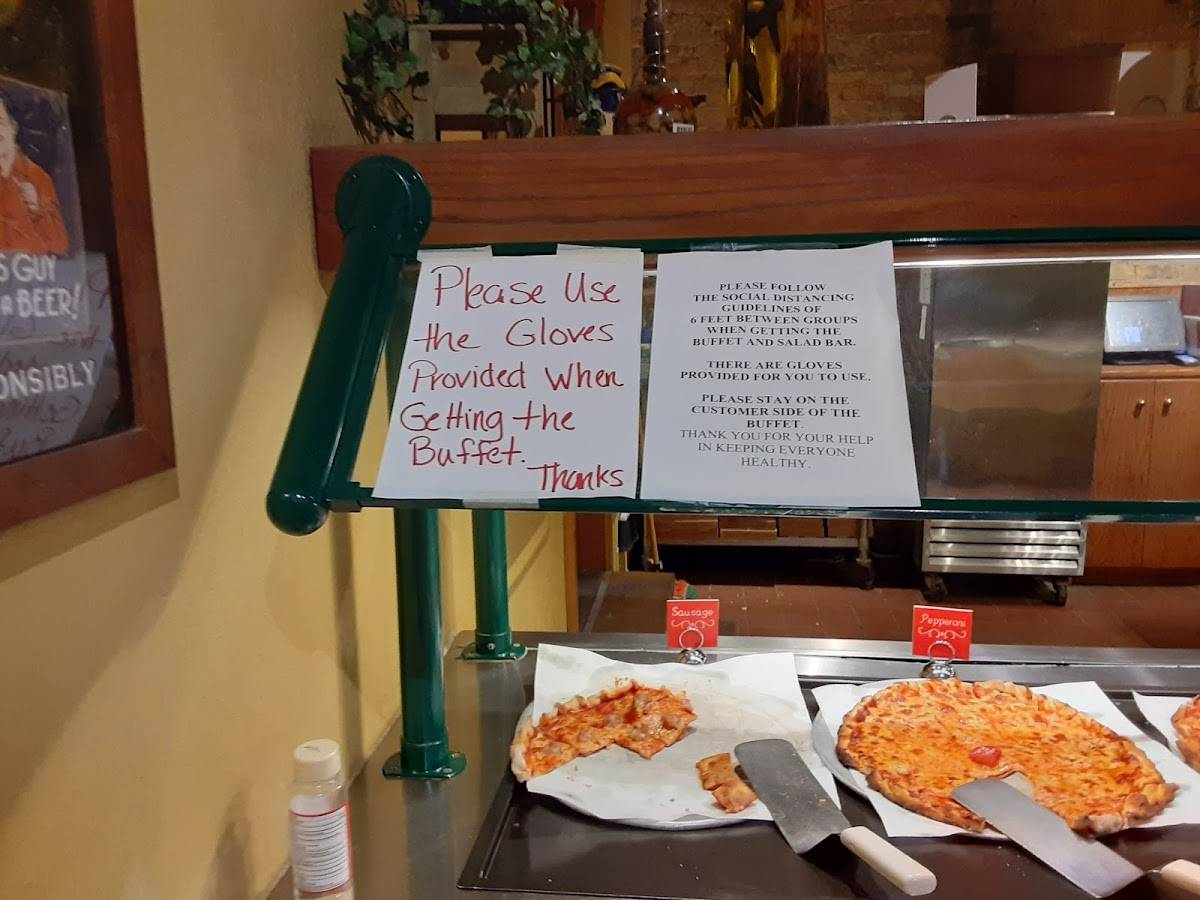 S GUY
A BEER!
ONSIBLY
Please Use
the Gloves
Provided When
Getting the
Buffet.
Thanks
PLEASE FOLLOW
THE SOCIAL DISTANCING
GUIDELINES OF
6 FEET BETWEEN GROUPS
WHEN GETTING THE
BUFFET AND SALAD BAR.
THERE ARE GLOVES
PROVIDED FOR YOU TO USE.
PLEASE STAY ON THE
CUSTOMER SIDE OF THE
BUFFET.
THANK YOU FOR YOUR HELP
IN KEEPING EVERYONE
HEALTHY.
Sausage
Pepperoni